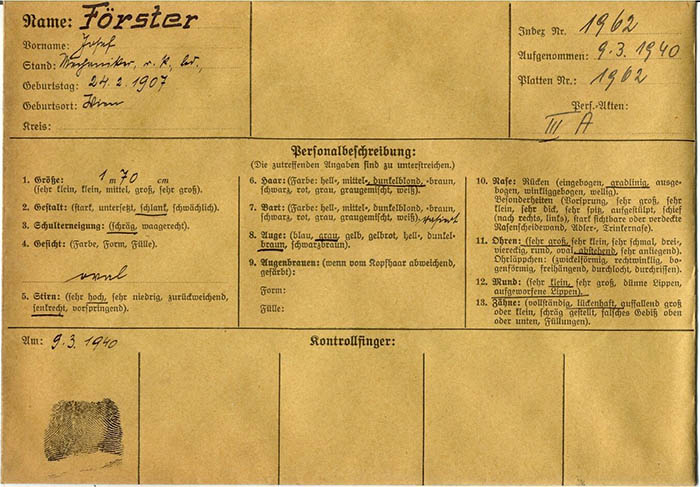 Name: Förster
Vorname: Josef
Stand: Mechaniker, r. k., ld.,
Geburtstag: 24.2.1907
Geburtsort: Wien
Kreis:
Index Nr. 1962
Aufgenommen: 9.3.1940
Platten Nr.: 1962
Pers.-Akten:
III A
Personalbeschreibung:
(Die zutreffenden Angaben sind zu unterstreichen.)
1. Größe: 1 m 70 cm
(sehr klein, klein, mittel, groß, sehr groß).
2. Gestalt: (stark, untersetzt, schlank, schwächlich).
3. Schulterneigung: (schräg, waagerecht).
4. Gesicht: (Farbe, Form, Fülle).
oval
5. Stirn: (sehr hoch, sehr niedrig, zurückweichend,
senkrecht, vorspringend).
6. Haar: (Farbe: hell-, mittel-, dunkelblond, -braun,
schwarz, rot, grau, graugemischt, weiß).
7. Bart: (Farbe: hell-, mittel-, dunkelblond, -braun,
schwarz, rot, grau, graugemischt, weiß). rasiert
8. Auge: (blau, grau, gelb, gelbrot, hell-, dunkel-
braun, schwarzbraun).
9. Augenbrauen: (wenn vom Kopfhaar abweichend,
gefärbt):
Form:
Fülle:
10. Nase: Rücken (eingebogen, gradlinig, ausge-
bogen, winkliggebogen, wellig).
Besonderheiten (Vorsprung, sehr groß, sehr
klein, sehr dick, sehr spitz, aufgestülpt, schief
(nach rechts, links), stark sichtbare oder verdeckte
Nasenscheidewand, Adler-, Trinkernase).
11. Ohren: (sehr groß, sehr klein, sehr schmal, drei-,
viereckig, rund, oval, abstehend, sehr anliegend).
Ohrläppchen: (zwickelförmig, rechtwinklig, bo-
genförmig, freihängend, durchlocht, durchrissen).
12. Mund: (sehr klein, sehr groß, dünne Lippen,
aufgeworfene Lippen).
13. Zähne: (vollständig, lückenhaft, auffallend groß
oder klein, schräg gestellt, falsches Gebiß oben
oder unten, Füllungen).
Am: 9.3.1940
Kontrollfinger: